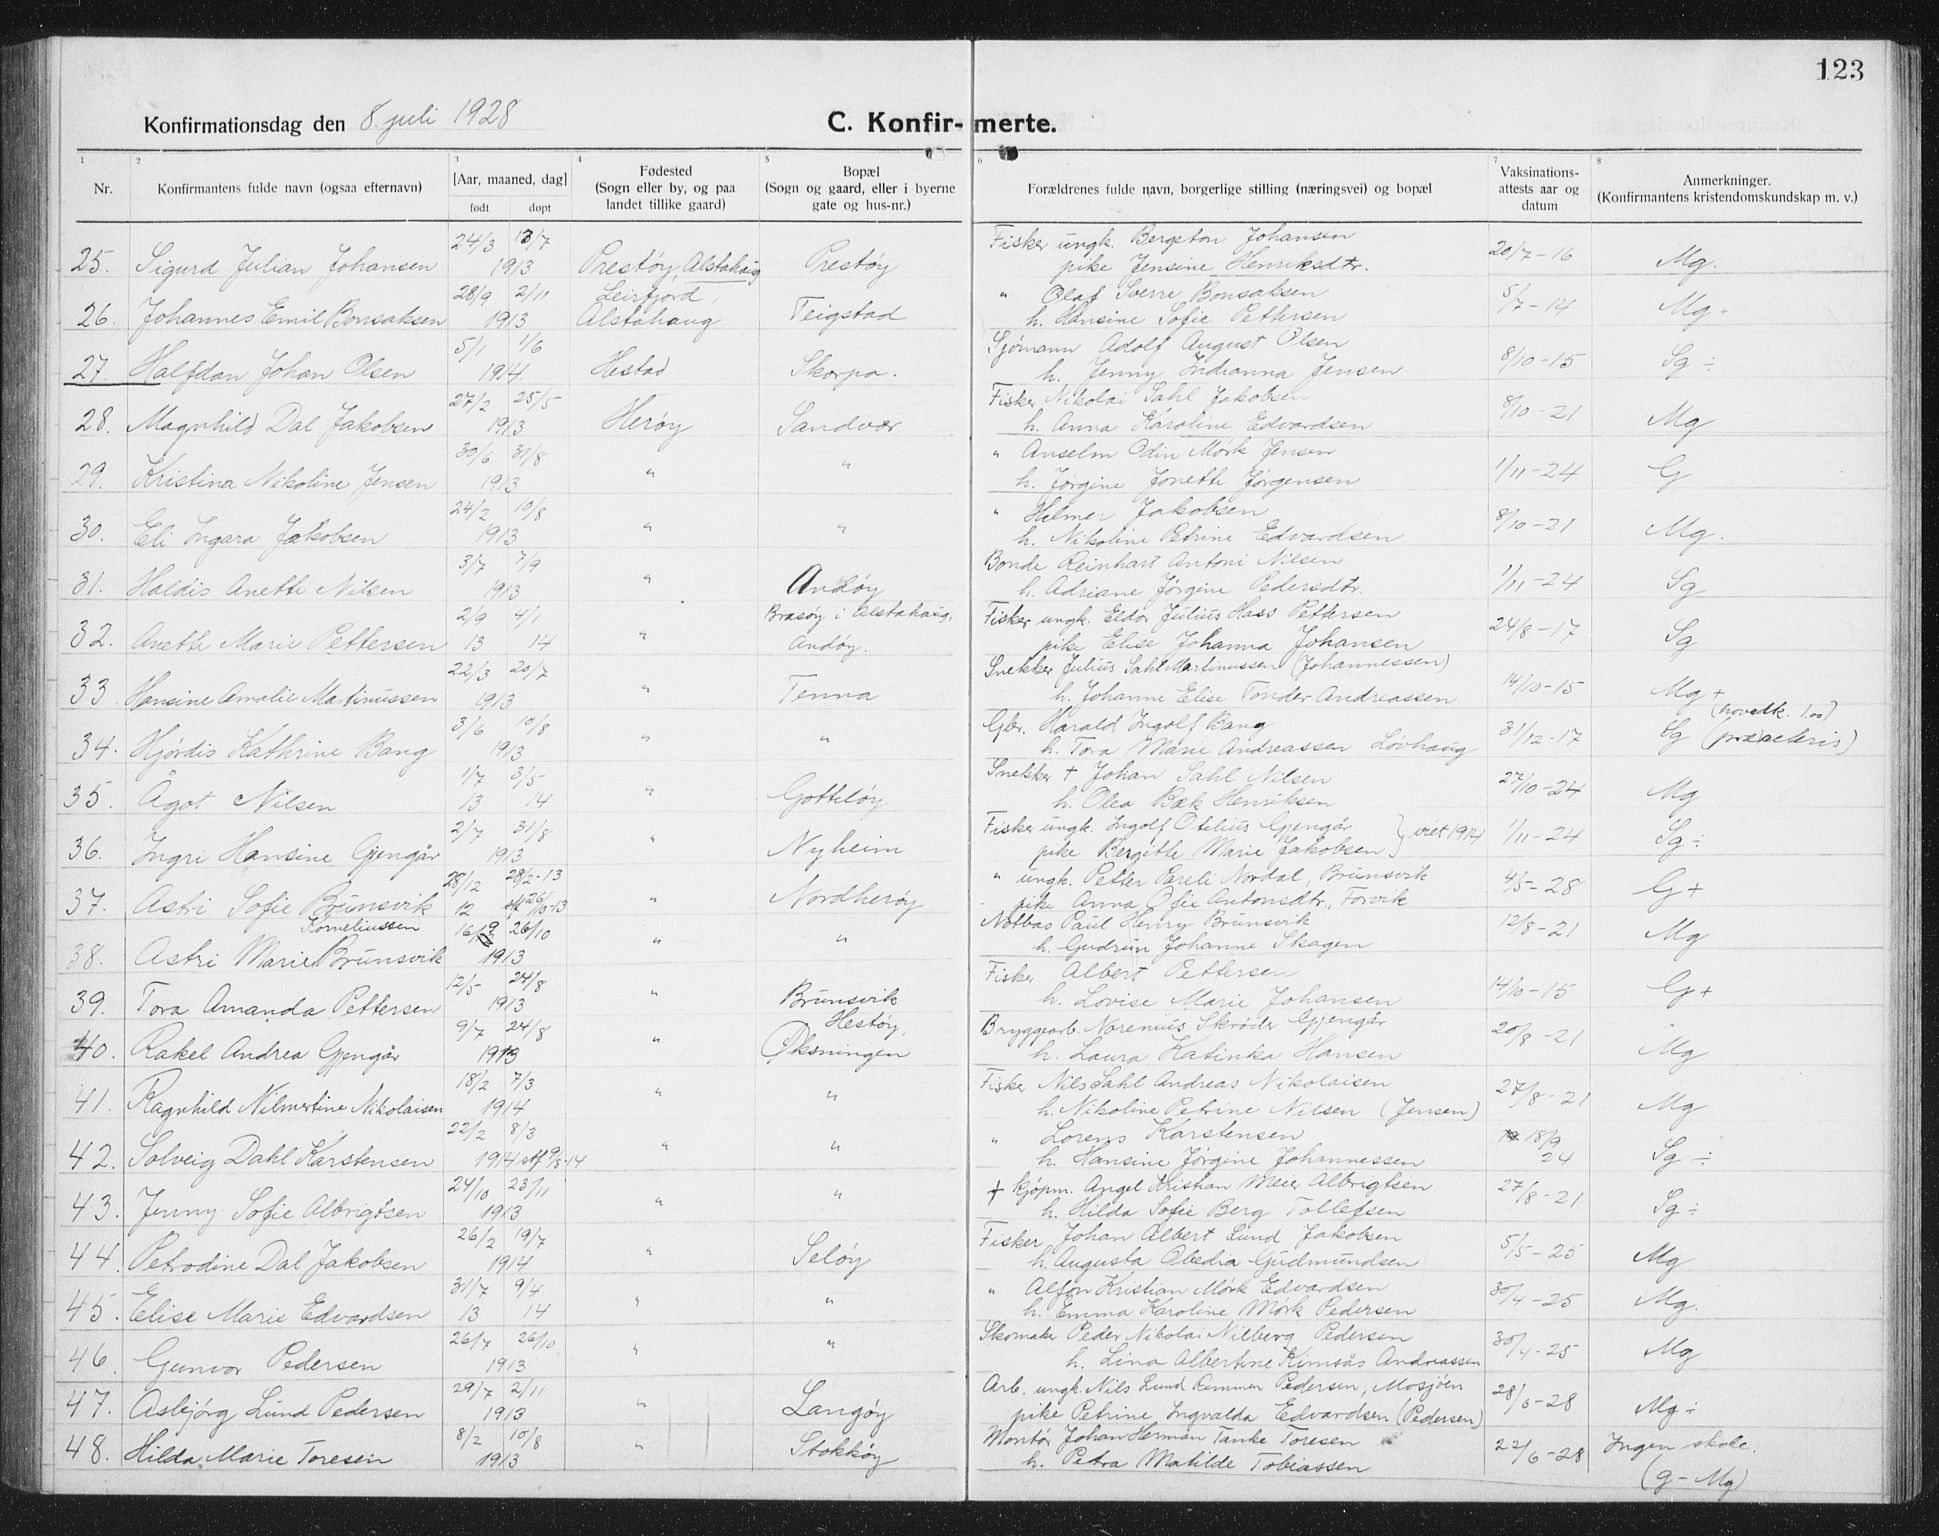 123
Konfirmationsdag den 8. juli 1928
C. Konfir- merte.
1 2 3 4 5 6 7 8
Nr. Konfirmantens fulde navn (ogsaa efternavn) [Aar, maaned, dag] født døpt Fødested (Sogn eller by, og paa landet tillike gaard) Bopæl (Sogn og gaard, eller i byerne gate og hus-nr.) Forældrenes fulde navn, borgerlige stilling (næringsvei) og bopæl Vaksinations-attests aar og datum Anmerkninger. (Konfirmantens kristendomskundskap m. v.)
24/3 13/7 Fisker ungk. Bergeton Johansen
25. Sigurd Julian Johansen 1913 Prestøy, Alstahaug Prestøy pike Jensine Henriksdtr. 20/7-16 Mg.
28/9 2/11 Leirfjord, " Olaf Sverre Bonsaksen
26. Johannes Emil Bonsaksen 1913 Alstahaug Teigstad h. Hansine Sofie Pettersen 5/7-14 Mg.
5/1 1/6 Sjømann Adolf August Olsen
27. Halfdan Johan Olsen 1914 Hestad Skorpa. h. Jenny Indianna Jensen 8/10-15 Sg ÷
27/2 25/5 Fisker Nikolai Sahl Jakobsen
28. Magnhild Dal Jakobsen 1913 Herøy Sandvær h. Anna Karoline Edvardsen 8/10-21 Mg
30/6 31/8 " Anselm Odin Mørk Jensen
29. Kristina Nikoline Jensen 1913 " " h. Jørgine Jonette Jørgensen 1/11-24 G
24/2 10/8 " Hilmer Jakobsen
30. Eli Ingara Jakobsen 1913 " " h. Nikoline Petrine Edvardsen 8/10-21 Mg.
3/7 7/9 Bonde Reinhart Antoni Nilsen
31. Haldis Anette Nilsen 1913 " Andøy h. Adriane Jørgine Pedersdtr. 1/11-24 Sg
2/9 4/1 Brasøy i Alstahaug, Fisker ungk. Eldor Julius Hass Pettersen
32. Anette Marie Pettersen 13 14 " Andøy. pike Elise Johanna Johansen 24/8-17 Sg
22/3 20/7 Snekker Julius Sahl Martinussen (Johannessen)
33 Hansine Amalie Martinussen 1913 " Tenna h. Johanne Elise Tønder Andreassen 14/10-15 Mg +
3/6 10/8 Gbr. Harald Ingolf Bang (hovedk. 1.00)
34. Hjørdis Kathrine Bang 1913 " " h. Tora Marie Andreassen Løvhaug 31/12-17 Sg (præceteris)
1/7 3/5 Snekker + Johan Sahl Nilsen
35. Ågot Nilsen 13 14 " Gotteløy h. Olea Bæk Henriksen 27/10-24 Mg
2/7 31/8 Fisker ungk. Ingolf Otelius Gjengår } viet 1914
36. Ingri Hansine Gjengår 1913 " Nyheim pike Bergitte Marie Jakobsen 1/11-24 Sg ÷
28/12 28/2-13 " ungk. Petter Pareli Nordal, Brunsvik
37. Astri Sofie Brunsvik 12 stf 26/10-13 " Nordherøy pike Anna Ofie Antonsdtr., Forvik 4/5-28 G+
Korneliussen 16/9 26/10 Notbas Paul Henry Brunsvik
38. Astri Marie Brunsvik 1913 " " h. Gudrun Johanne Skagen 12/8-21 Mg
12/5 24/8 Fisker Albert Pettersen
39. Tora Amanda Pettersen 1913 " Brunsvik h. Lovise Marie Johansen 14/10-15 G+
9/7 24/8 Hestøy, Bryggearb. Norenius Skrøder Gjengår
40. Rakel Andrea Gjengår 1913 " Øksningen h. Laura Katinka Hansen 20/8-21 Mg
18/2 7/3 Fisker Nils Sahl Andreas Nikolaisen
41. Ragnhild Nilmertine Nikolaisen 1914 " " h. Nikoline Petrine Nilsen (Jensen) 27/8-21 Mg
22/2 8/3 " Lorens Karstensen 18/9
42. Solveig Dahl Karstensen 1914 stf 9/8-14 " " h. Hansine Jørgine Johannessen 24 Sg ÷
24/10 23/11 + kjøpm. Angel Kristian Meier Albrigtsen
43. Jenny Sofie Albrigtsen 1913 " " h. Hilda Sofie Berg Tollefsen 27/8-21 Sg ÷
26/2 19/7 Fisker Johan Albert Lund Jakobsen
44. Petrodine Dal Jakobsen 1914 " Seløy h. Augusta Obedia Gudmundsen 5/5-25 Mg
31/7 9/4 " Alfon Kristian Mørk Edvardsen
45. Elise Marie Edvardsen 13 14 " " h. Emma Karoline Mørk Pedersen 30/4-25 Mg.
26/7 26/10 Skomaker Peder Nikolai Nilberg Pedersen
46. Gunvor Pedersen 1913 " " h. Lina Albertine Kimsås Andreassen 30/4-25 Mg
29/7 2/11 Arb. ungk. Nils Lund Remmen Pedersen, Mosjøen
47. Asbjørg Lund Pedersen 1913 " Langøy pike Petrine Ingvalda Edvardsen (Pedersen) 28/6-28 Mg ÷
8/2 10/8 Montør Johan Herman Tanke Toresen
48. Hilda Marie Toresen 1913 " Stokkøy h. Petra Matilde Tobiassen 22/6-28 Ingen skole.
(g - Mg)